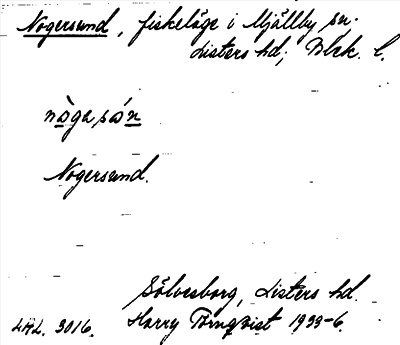 Nogersund, fiskeläge i Mjällby sn.
Listers hd; Blek. l.
nògasón
Nogersund.
Sölvesborg, Listers hd.
LHL. 3016. Harry Törnqvist 1933-6.